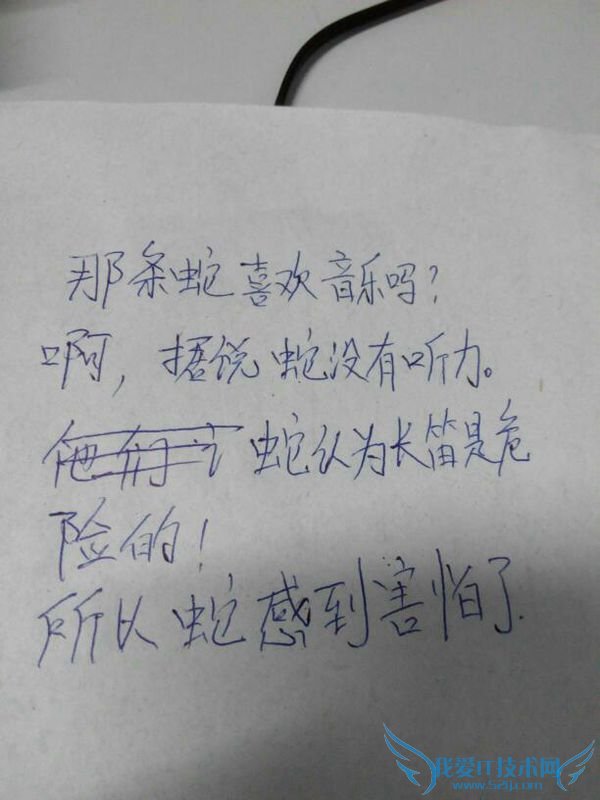 那条蛇喜欢音乐吗?
啊,据说蛇没有听力。
他们讠蛇认为长笛是危
险的!
所以蛇感到害怕了.
我爱IT技术网
www.52ij.com